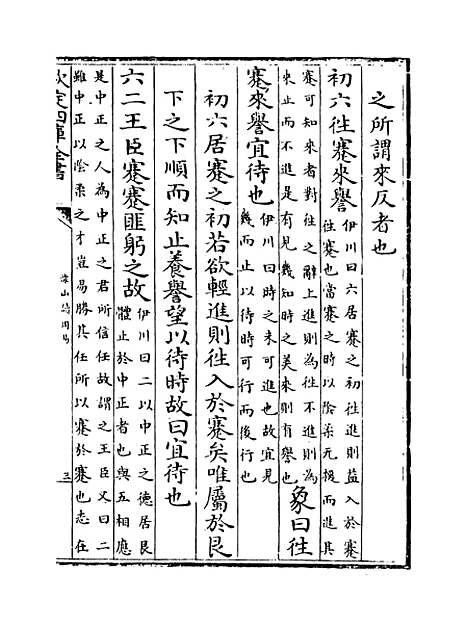 之所謂來反者也
初六往蹇來譽 伊川曰六居蹇之初往進則益入於蹇
往蹇也當蹇之時以陰柔无援而進其
蹇可知來者對往之辭上進則為往不進則為
來止而不進是有見幾知時之美來則有譽也 象曰往
蹇來譽宜待也 伊川曰時之未可進也故宜見
幾而止以待時可行而後行也
初六居蹇之初若欲輕進則往入於蹇矣唯屬於艮
下之下順而知止養譽望以待時故曰宜待也
六二王臣蹇蹇匪躬之故 伊川曰二以中正之德居艮
體止於中正者也與五相應
是中正之人為中正之君所信任故謂之王臣又曰二
雖中正以陰柔之才豈易勝其任所以蹇於蹇也志在
欽定四庫全書
周易
三